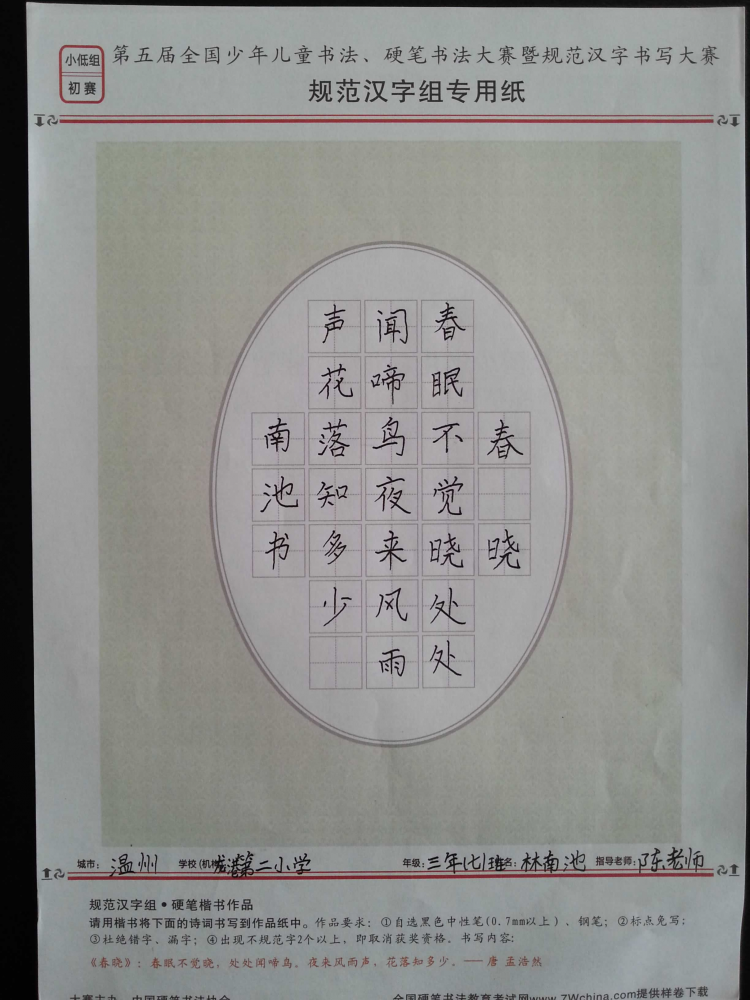 小低组
初赛
第五届全国少年儿童书法、硬笔书法大赛暨规范汉字书写大赛
规范汉字组专用纸
春晓
春眠不觉晓处处
闻啼鸟夜来风雨
声花落知多少
南池书
城市：温州 学校(机构 龙港第二小学 年级：三年(七)班 名：林南池 指导老师：陈老师
规范汉字组•硬笔楷书作品
请用楷书将下面的诗词书写到作品纸中。作品要求：①自选黑色中性笔(0.7mm以上)、钢笔；②标点免写；
③杜绝错字、漏字；④出现不规范字2个以上，即取消获奖资格。书写内容：
《春晓》：春眠不觉晓，处处闻啼鸟。夜来风雨声，花落知多少。—— 唐 孟浩然
大赛主办 中国硬笔书法协会 全国硬笔书法教育考试网www.ZWchina.com提供样卷下载